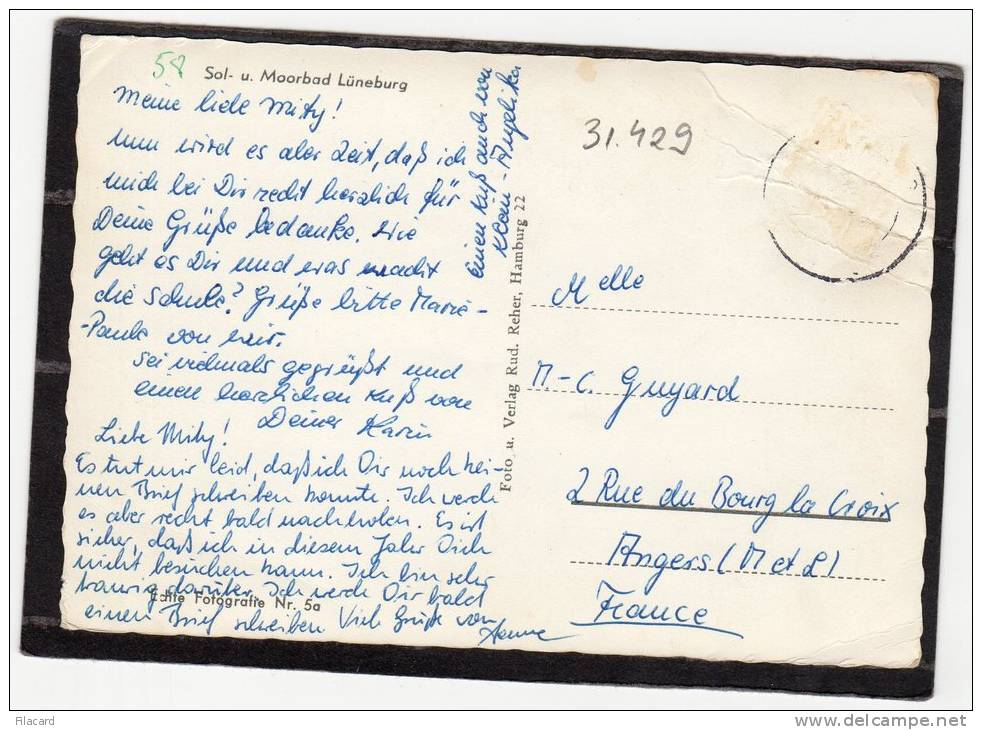 58
Sol- u. Moorbad Lüneburg
Meine liebe Mity!
Nun wird es aber Zeit, daß ich
mich bei Dir recht herzlich für
Deine Grüße bedanke. Wie
geht es Dir und was macht
die Schule? Grüße bitte Marie-
-Paule von mir.
Sei vielmals gegrüßt und
einen herzlichen Kuß von
Deiner Karin
Liebe Mity!
Es tut mir leid, daß ich Dir noch kei-
nen Brief schreiben konnte. Ich werde
es aber recht bald nachholen. Es ist
sicher, daß ich in diesem Jahr Dich
nicht besuchen kann. Ich bin sehr
traurig darüber. Ich werde Dir bald
einen Brief schreiben Viele Grüße von
Echte Fotografie Nr. 5a
Einen Kuß auch von
Klein-Angelika
Foto u. Verlag Rud. Reher, Hamburg 22
31.429
Melle
M.-C. Guyard
2 Rue du Bourg la Croix
Angers (M et L)
France
Filacard
www.delcampe.net